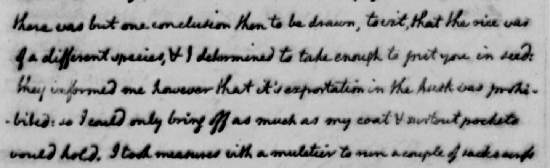 there was but one conclusion then to be drawn, to wit, that the rice was
of a different species, & I determined to take enough to put you in seed:
they informed me however that it's exportation in the husk was prohi-
-bited: so I could only bring off as much as my coat & surtout pockets
would hold. I took measures with a muletier to run a couple of sacks across